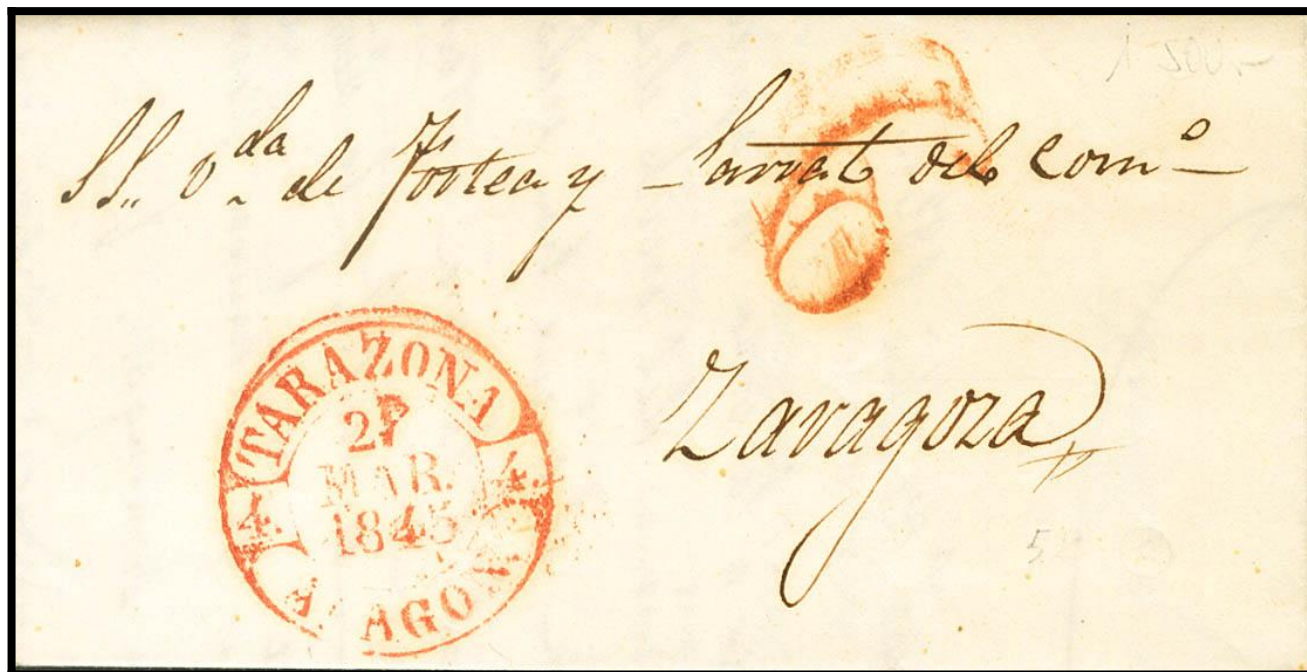 SS,, v.da de Fortea y Sarrat del Com.o
Zaragoza
TARAZONA
MAR.
1845
4 4
ARAGON
6